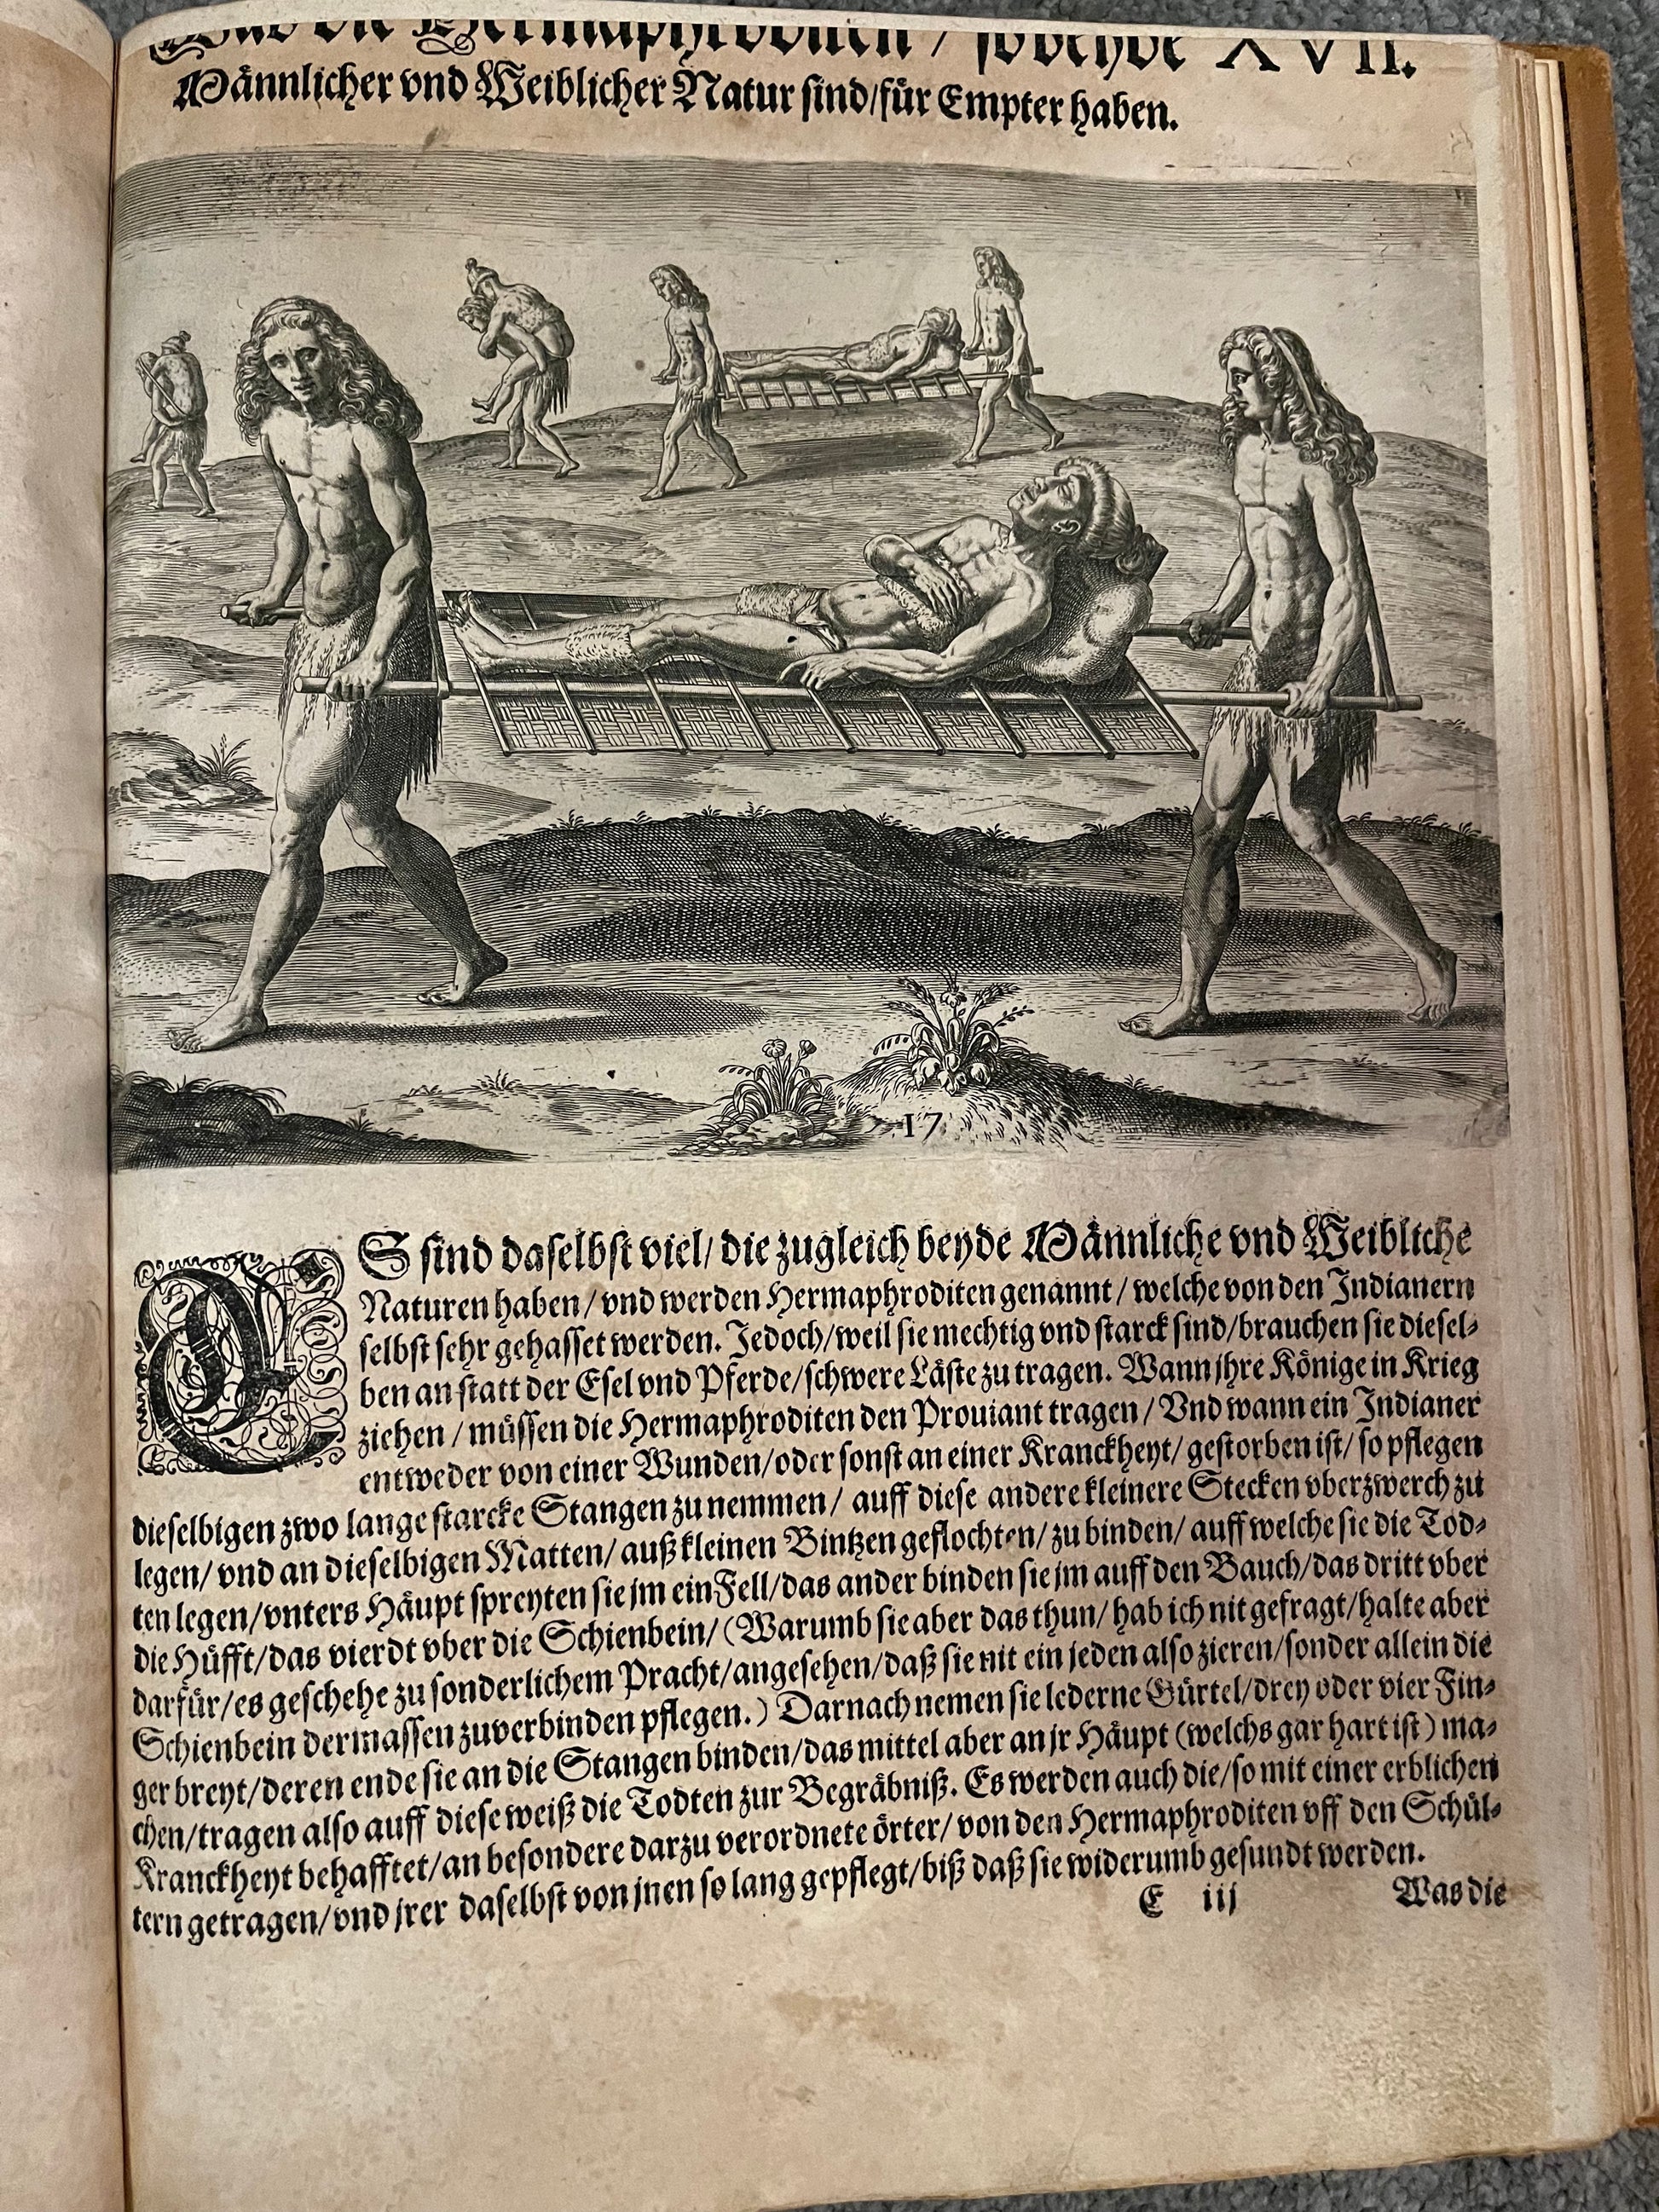 Was die Hermaphroditen / so beyde XVII.
Männlicher vnd Weiblicher Natur sind/für Empter haben.
17
ES sind daselbst viel/ die zugleich beyde Männliche vnd Weibliche
Naturen haben / vnd werden Hermaphroditen genannt / welche von den Indianern
selbst sehr gehasset werden. Jedoch/weil sie mechtig vnd starck sind/brauchen sie diesel-
ben an statt der Esel vnd Pferde/schwere Läste zu tragen. Wann jhre Könige in Krieg
ziehen / müssen die Hermaphroditen den Prouiant tragen / Vnd wann ein Indianer
entweder von einer Wunden/oder sonst an einer Kranckheyt/ gestorben ist/ so pflegen
dieselbigen zwo lange starcke Stangen zu nemmen / auff diese andere kleinere Stecken vberzwerch zu
legen/ vnd an dieselbigen Matten/ auß kleinen Bintzen geflochten/ zu binden/ auff welche sie die Tod-
ten legen/vnters Häupt spreyten sie jm ein Fell/das ander binden sie jm auff den Bauch/das dritt vber
die Hüfft/das vierdt vber die Schienbein/ (Warumb sie aber das thun/ hab ich nit gefragt/halte aber
darfür/es geschehe zu sonderlichem Pracht/angesehen/daß sie nit ein jeden also zieren/sonder allein die
Schienbein dermassen zuverbinden pflegen.) Darnach nemen sie lederne Gürtel/drey oder vier Fin-
ger breyt/deren ende sie an die Stangen binden/das mittel aber an jr Häupt (welchs gar hart ist) ma-
chen/tragen also auff diese weiß die Todten zur Begräbniß. Es werden auch die/so mit einer erblichen
Kranckheyt behafftet/an besondere darzu verordnete örter/ von den Hermaphroditen vff den Schül-
tern getragen/vnd jrer daselbst von jnen so lang gepflegt/biß daß sie widerumb gesundt werden.
E iij Was die